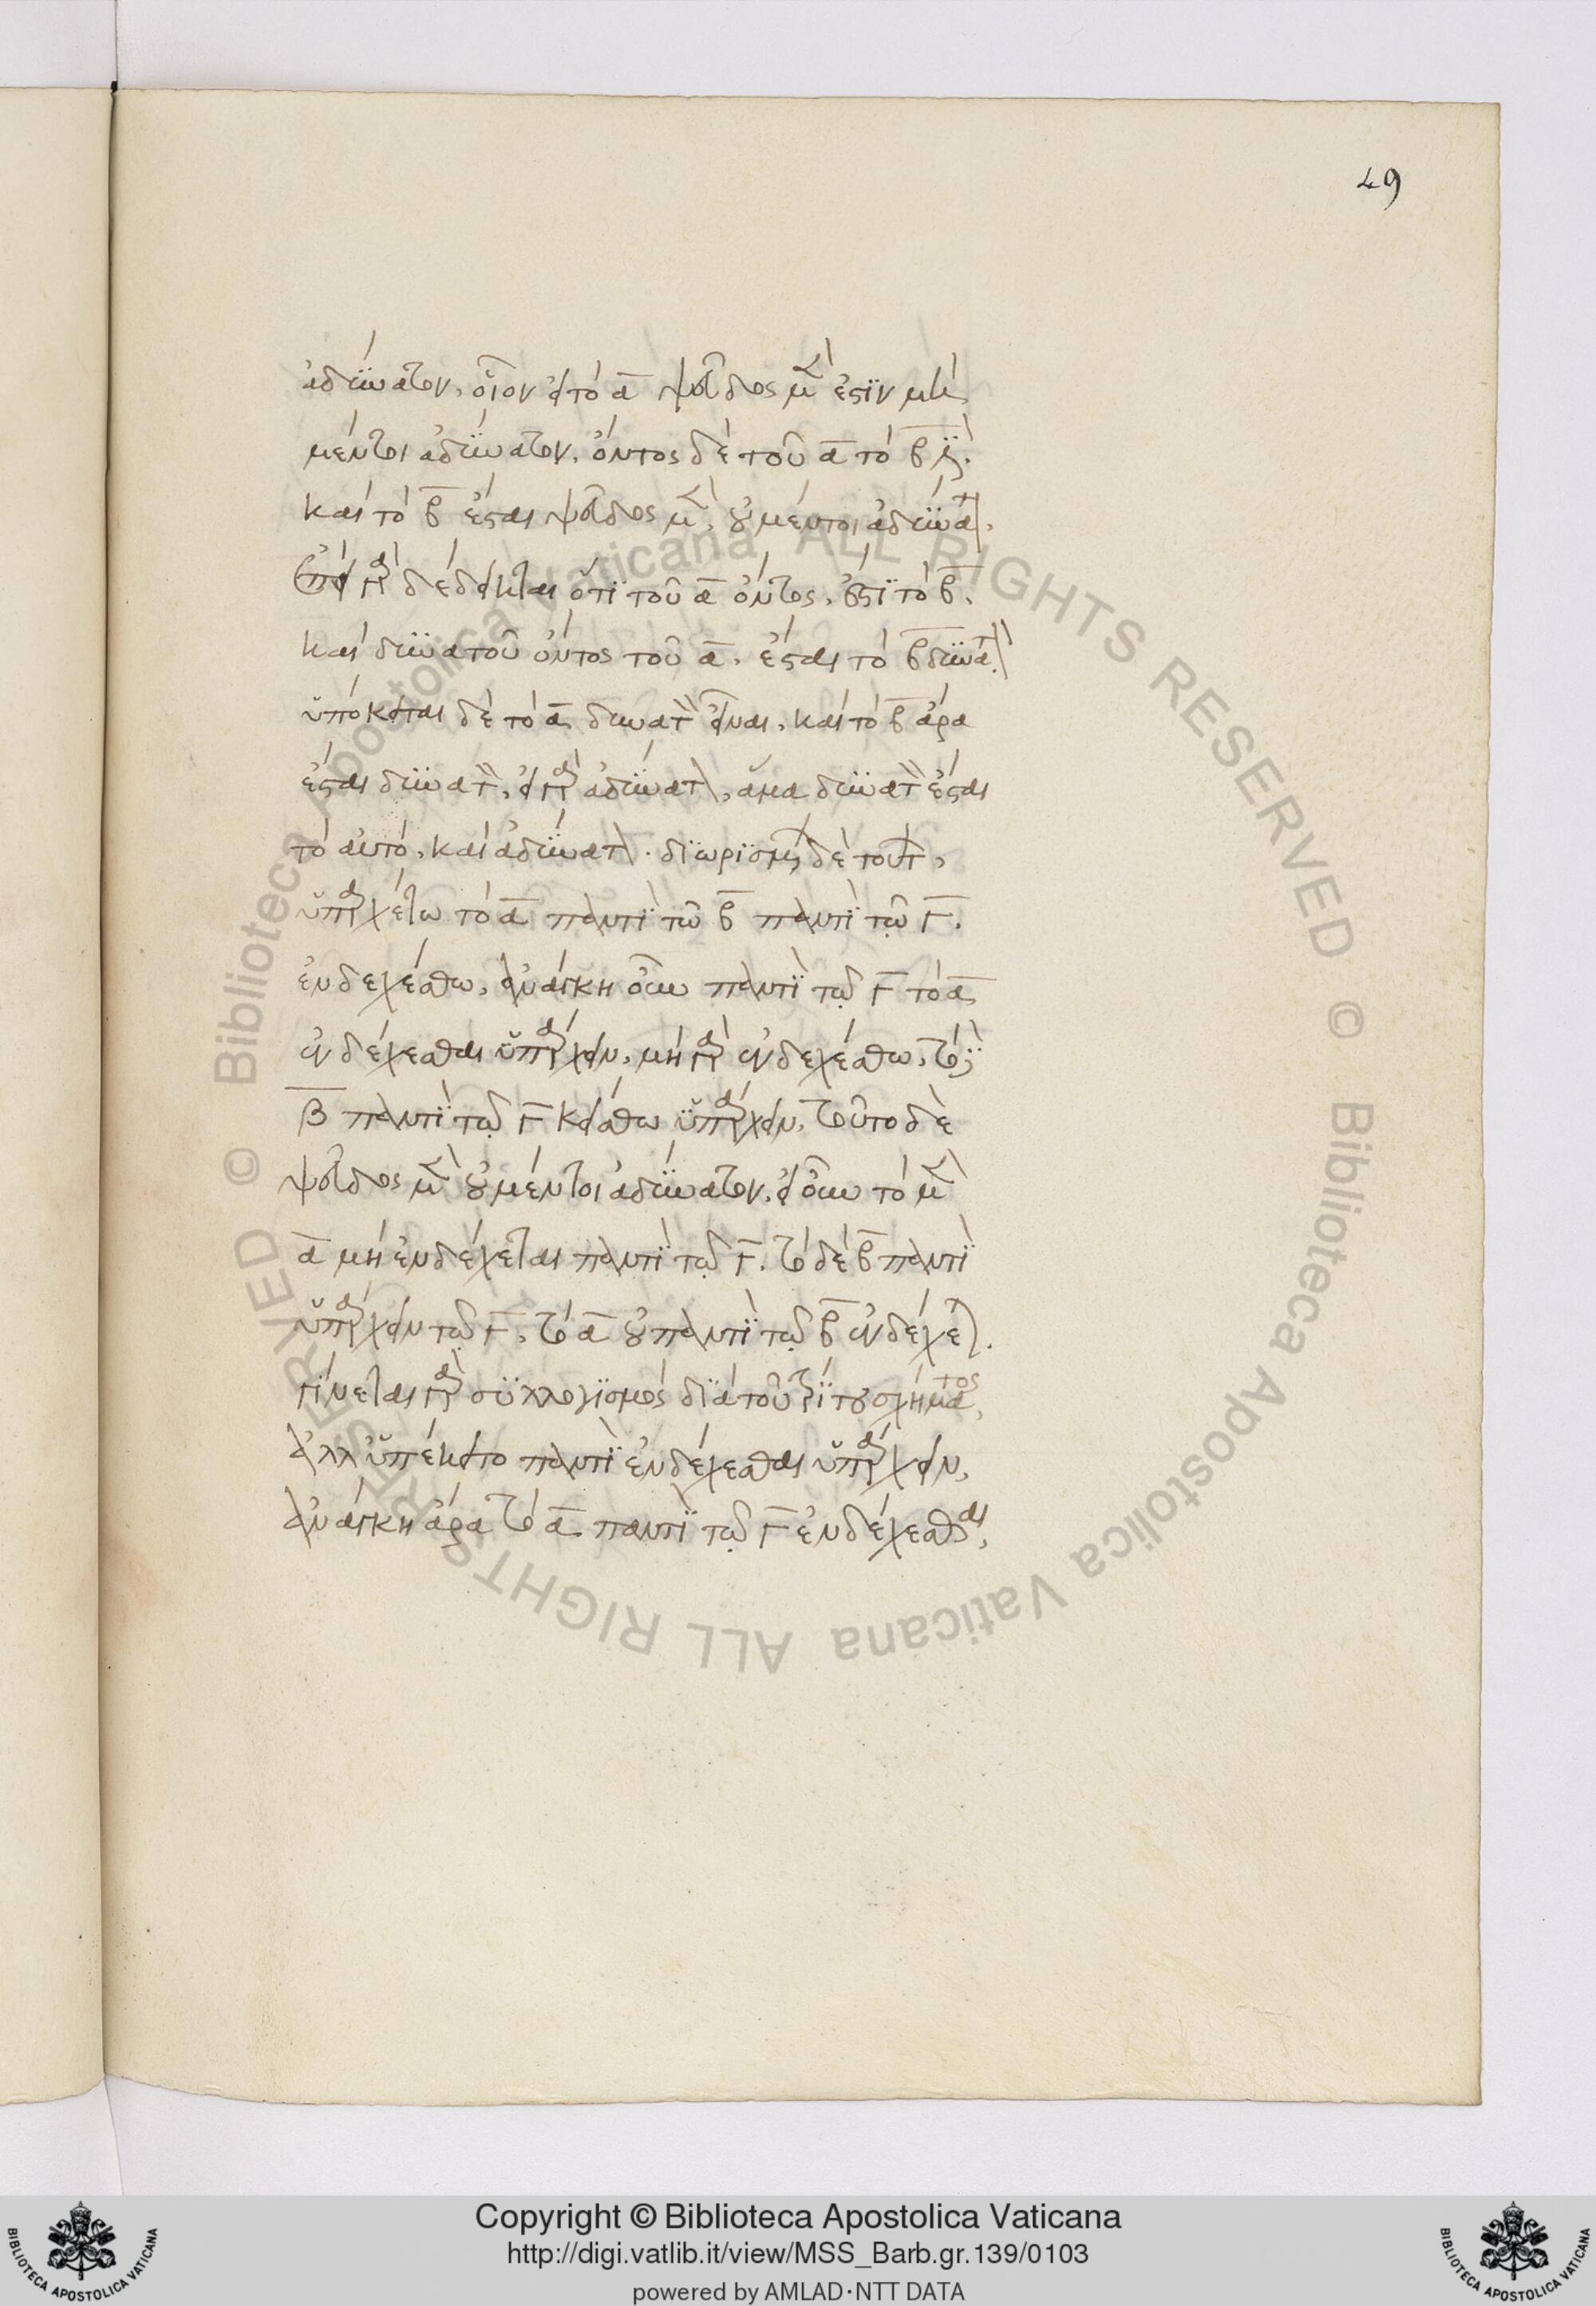 49
ἀδύνατον. οἷον εἰ τὸ α ψεῦδος μέν ἐστιν μὴ
μέντοι ἀδύνατον. ὄντος δὲ τοῦ α τὸ β ἐστὶ.
καὶ τὸ β ἔσται ψεῦδος μὲν, οὐ μέντοι ἀδύνατον.
ἐπεὶ γὰρ δέδεικται ὅτι τοῦ α ὄντος, ἐστὶ τὸ β.
καὶ δυνατοῦ ὄντος τοῦ α, ἔσται τὸ β δυνατόν.
ὑπόκειται δὲ τὸ α δυνατὸν εἶναι, καὶ τὸ β ἄρα
ἔσται δυνατὸν, εἰ γὰρ ἀδύνατον, ἅμα δυνατὸν ἔσται
τὸ αὐτὸ, καὶ ἀδύνατον. διωρισμένων δὲ τούτων,
ὑπαρχέτω τὸ α παντὶ τῶ β παντὶ τῷ Γ.
ἐνδεχέσθω, ἀνάγκη οὖν παντὶ τῷ Γ τὸ α
ἐνδέχεσθαι ὑπάρχειν, μὴ γὰρ ἐνδεχέσθω, τὸ δὲ
β παντὶ τῷ Γ κείσθω ὑπάρχειν, τοῦτο δὲ
ψεῦδος μὲν οὐ μέντοι ἀδύνατον, εἰ οὖν τὸ μὲν
α μὴ ἐνδέχεται παντὶ τῷ Γ. τὸ δὲ β παντὶ
ὑπάρχειν τῷ Γ, τὸ α οὐ παντὶ τῷ β ἐνδέχεται.
γίνεται γὰρ συλλογισμὸς διὰ τοῦ τρίτου σχήματος,
ἀλλ' ὑπέκειτο παντὶ ἐνδέχεσθαι ὑπάρχειν,
ἀνάγκη ἄρα τὸ α παντὶ τῷ Γ ἐνδέχεσθαι,
© Biblioteca Apostolica Vaticana ALL RIGHTS RESERVED © Biblioteca Apostolica Vaticana ALL RIGHTS RESERVED
Copyright © Biblioteca Apostolica Vaticana
http://digi.vatlib.it/view/MSS_Barb.gr.139/0103
powered by AMLAD·NTT DATA
BIBLIOTECA APOSTOLICA VATICANA
BIBLIOTECA APOSTOLICA VATICANA